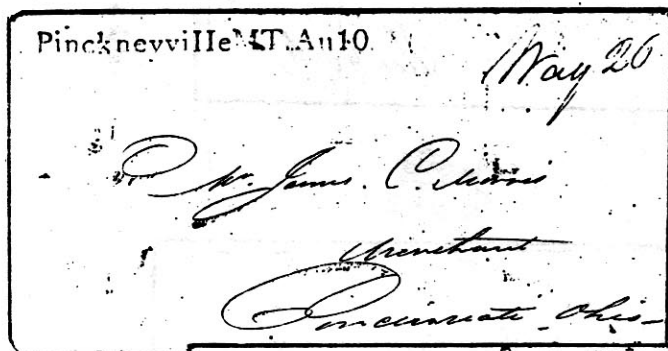 Pinckneyville M.T. Au 10
May 26
Mr. James C. Morris
Merchant
Cincinnati Ohio